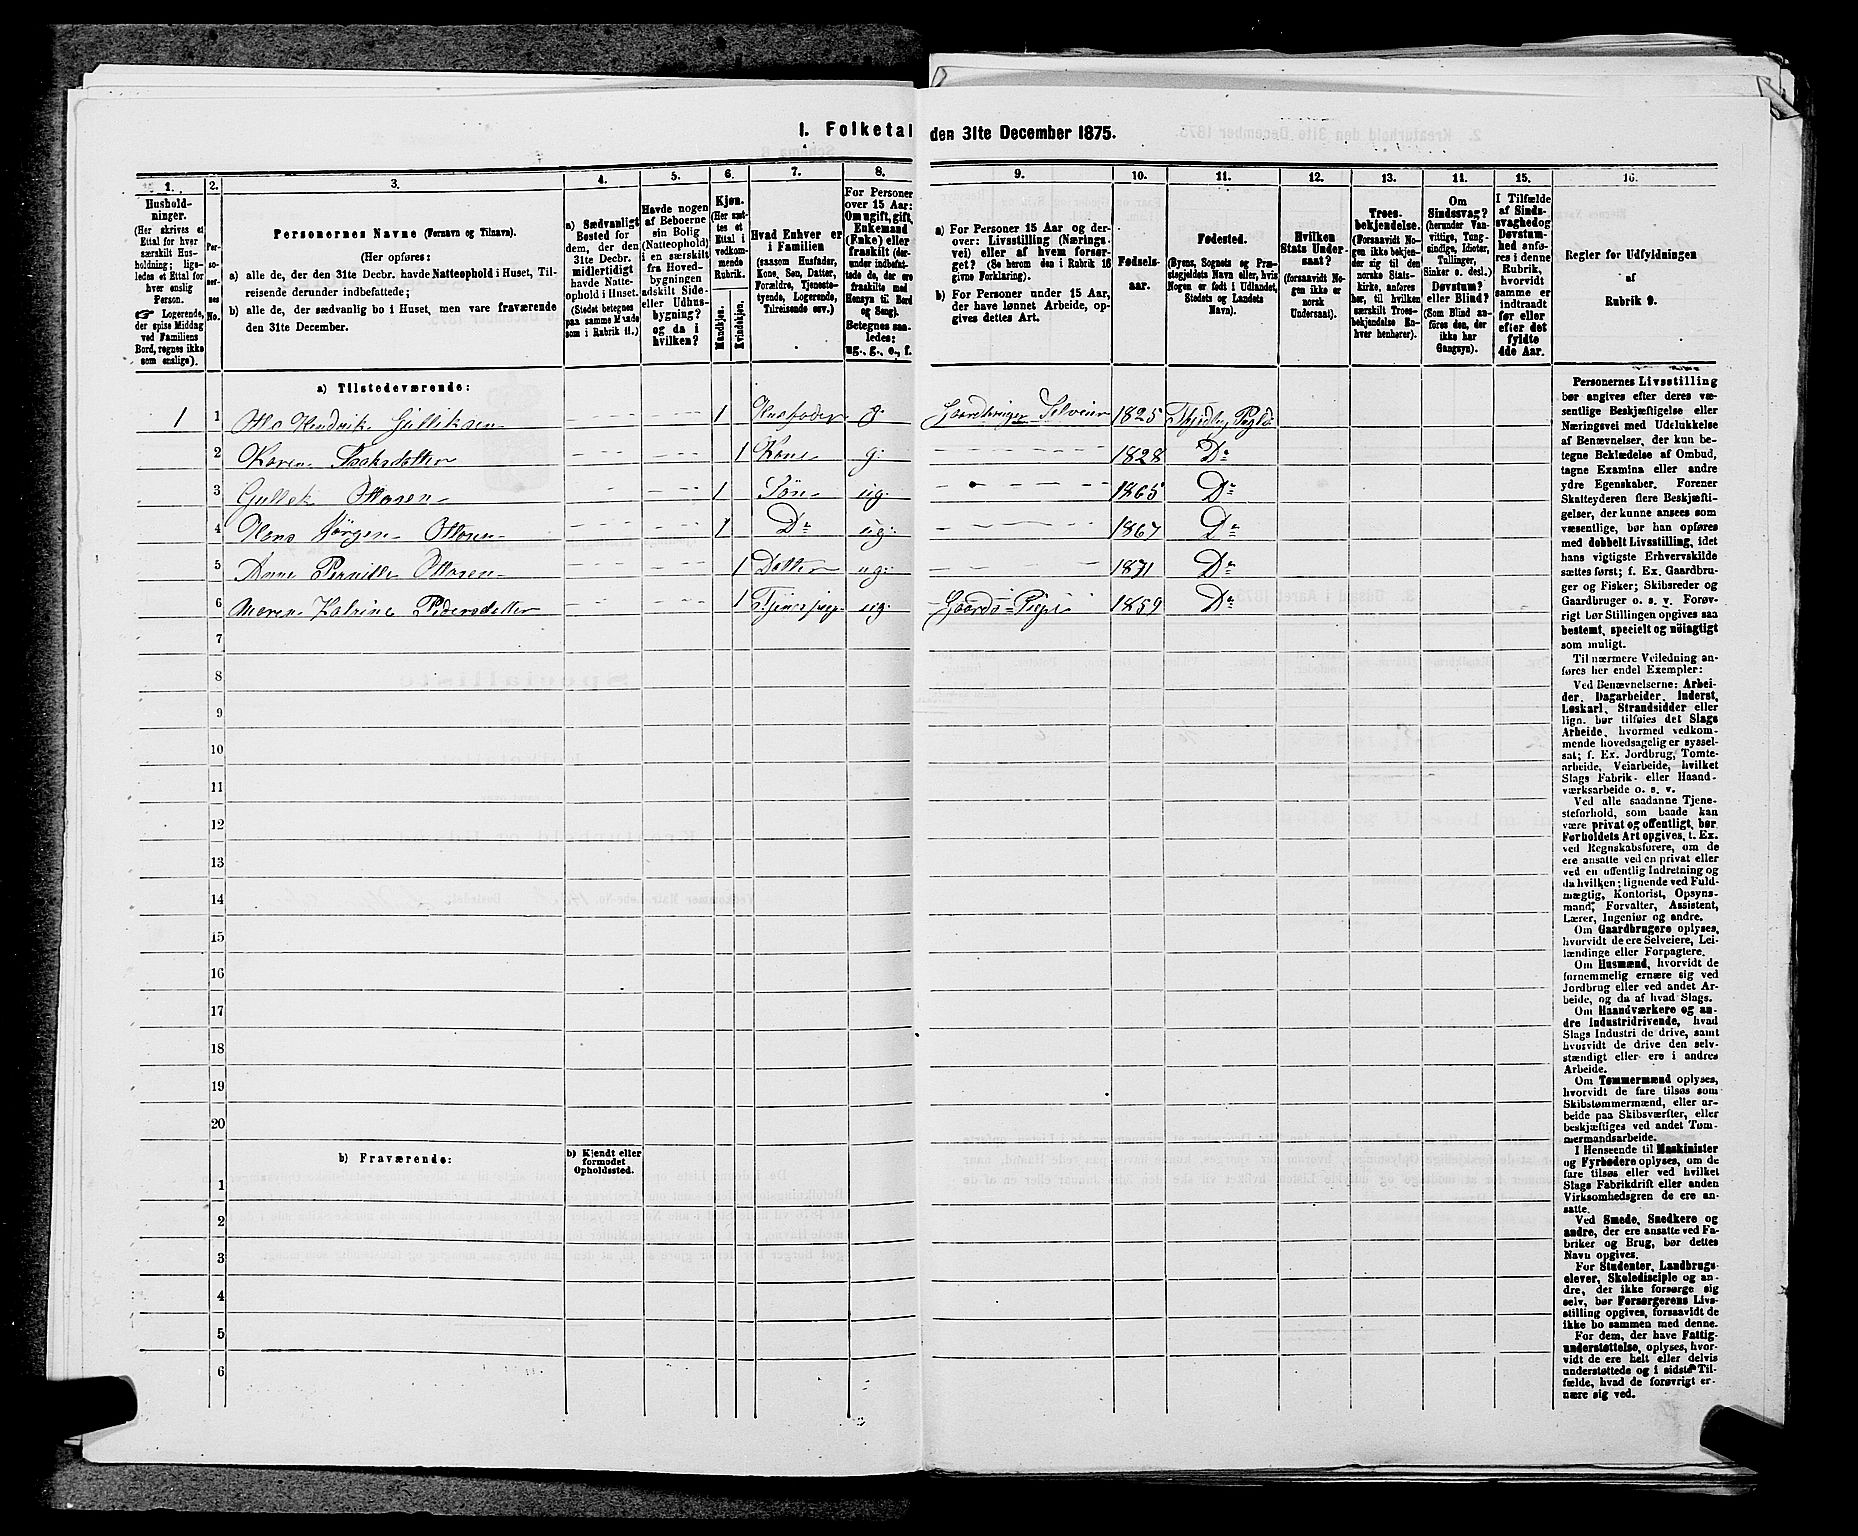 1. Folketal den 31te December 1875.
1. 2. 3. 4. 5. 6. 7. 8. 9. 10. 11. 12. 13. 14. 15. 16.
Hushold-
ninger.
(Her skrives et
Ettal for hver
særskilt Hus-
holdning; lige-
ledes et Ettal for
hver enslig
Person.
☞ Logerende,
der spise Middag
ved Familiens
Bord, regnes ikke
som enslige).
Per-
so-
ner-
nes
No.
Personernes Navne (Fornavn og Tilnavn).
(Her opføres:
a) alle de, der den 31te Decbr. havde Natteophold i Huset, Til-
reisende derunder indbefattede;
b) alle de, der sædvanlig bo i Huset, men vare fraværende
den 31te December.
a) Sædvanligt
Bosted for
dem, der den
31te Decbr.
midlertidigt
havde Natte-
ophold i Huset.
(Stedet betegnes
paa samme Maade
som i Rubrik 11.)
Havde nogen
af Beboerne
sin Bolig
(Natteophold)
i en særskilt
fra Hoved-
bygningen
adskilt Side-
eller Udhus-
bygning?
og da i
hvilken?
Kjøn.
(Her sæt-
tes et
Ettal i
vedkom-
mende
Rubrik.
Mandkjøn.
Kvindekjøn.
Hvad Enhver er
i Familien
(saasom Husfader,
Kone, Søn, Datter,
Forældre, Tjeneste-
tyende, Logerende,
Tilreisende osv.)
For Personer
over 15 Aar:
Om ugift, gift,
Enkemand
(Enke) eller
fraskilt (der-
under indbefat-
tede de, der ere
fraskilte med
Hensyn til Bord
og Seng).
Betegnes saa-
ledes:
ug., g., e., f.
a) For Personer 15 Aar og der-
over: Livsstilling (Nærings-
vei) eller af hvem forsør-
get? (Se herom den i Rubrik 16
givne Forklaring).
b) For Personer under 15 Aar,
der have lønnet Arbeide, op-
gives dettes Art.
Fødsels-
aar.
Fødested.
(Byens, Sognets og Præ-
stegjeldets Navn eller, hvis
Nogen er født i Udlandet,
Stedets og Landets
Navn).
Hvilken
Stats Under-
saat?
(forsaavidt No-
gen ikke er
norsk
Undersaat).
Troes-
bekjendelse.
(Forsaavidt No-
gen ikke bekjen-
der sig til den
norske Stats-
kirke, anføres
her, til hvilken
særskilt Troes-
bekjendelse En-
hver henhører).
Om
Sindssvag?
(herunder Van-
vittige, Tung-
sindige, Idioter,
Sinker o. desl.)
Døvstum?
eller Blind?
(Som Blind an-
føres den, der
ikke har
Gangsyn).
I Tilfælde
af Sinds-
svaghed og
Døvstum-
hed anfø-
res i denne
Rubrik,
hvorvidt
samme er
indtraadt
før eller
efter det
fyldte
4de Aar.
Regler for Udfyldningen
af
Rubrik 9.
a) Tilstedeværende:
1 1 Hendrik Gulleksen 1 Husfader g. Gaardbruger Selveier 1825
2 Karen Isaksdatter 1 Kone g. 1828 Do
3 Gullek Ottosen 1 Søn ug. 1865 Do
4 Hans Jørgen Ottosen 1 Do ug. 1867 Do
5 Anne Pernille Ottosen 1 Datter ug. 1871 Do
6 Maren Katrine Pedersdatter 1 ug. Gaards-Pige 1859 Do
7
8
9
10
11
12
13
14
15
16
17
18
19
20
b) Fraværende:
b) Kjendt eller
formodet
Opholdssted.
1
2
3
4
5
6
Personernes Livsstilling
bør angives efter deres væ-
sentlige Beskjæftigelse eller
Næringsvei med Udelukkelse
af Benævnelser, der kun be-
tegne Beklædelse af Ombud,
tagne Examina eller andre
ydre Egenskaber. Forener
Skatteyderen flere Beskjæfti-
gelser, der kunne ansees som
væsentlige, bør han opføres
med dobbelt Livsstilling, idet
hans vigtigste Erhvervskilde
sættes først; f. Ex. Gaardbru-
ger og Fisker; Skibsreder og
Gaardbruger o. s. v. Forøv-
rigt bør Stillingen opgives saa
bestemt, specielt og nöiagtigt
som muligt.
Til nærmere Veiledning an-
føres her endel Exempler:
Ved Benævnelserne: Arbei-
der, Dagarbeider, Inderst,
Løskarl, Strandsidder eller
lign. bør tilføies det Slags
Arbeide, hvormed vedkom-
mende hovedsagelig er syssel-
sat; f. Ex. Jordbrug, Tomte-
arbeide, Veiarbeide, hvilket
Slags Fabrik- eller Haand-
værksarbeide o. s. v.
Ved alle saadanne Tjene-
steforhold, som baade kan
være privat og offentligt, bør
Forholdets Art opgives, t. Ex.
ved Regnskabsførere, om de
ere ansatte ved en privat eller
ved en offentlig Indretning og
da hvilken; lignende ved Fuld-
mægtig, Kontorist, Opsyns-
mand, Forvalter, Assistent,
Lærer, Ingeniør og andre.
Om Gaardbrugere oplyses,
hvorvidt de ere Selveiere, Lei-
lændinge eller Forpagtere.
Om Husmænd, hvorvidt de
fornemmelig ernære sig ved
Jordbrug eller ved andet Ar-
beide, og da af hvad Slags.
Om Haandværkere og an-
dre Industridrivende, hvad
Slags Industri de drive, samt
hvorvidt de drive den selv-
stændigt eller ere i andres
Arbeide.
Om Tømmermænd oplyses,
hvorvidt de fare tilsøs som
Skibstømmermænd, eller ar-
beide paa Skibsværfter, eller
beskjæftiges ved andet Tøm-
mermandsarbeide.
I Henseende til Maskinister
og Fyrbødere oplyses, om de
fare tilsøs eller ved hvilket
Slags Fabrikdrift eller anden
Virksomhedsgren de ere an-
satte.
Ved Smede, Snedkere og
andre, der ere ansatte ved Fa-
briker og Brug, bør dettes
Navn opgives.
For Studenter, Landbrugs-
elever, Skoledisciple og an-
dre, der ikke forsørge sig
selv, bør Forsørgerens Livs-
stilling opgives, forsaavidt de
ikke bo sammen med denne.
For dem, der have Fattig-
understøttelse, oplyses, hvor-
vidt de ere helt eller delvis
understøttede og i sidste Til-
fælde, hvad de forøvrigt er-
nære sig ved.